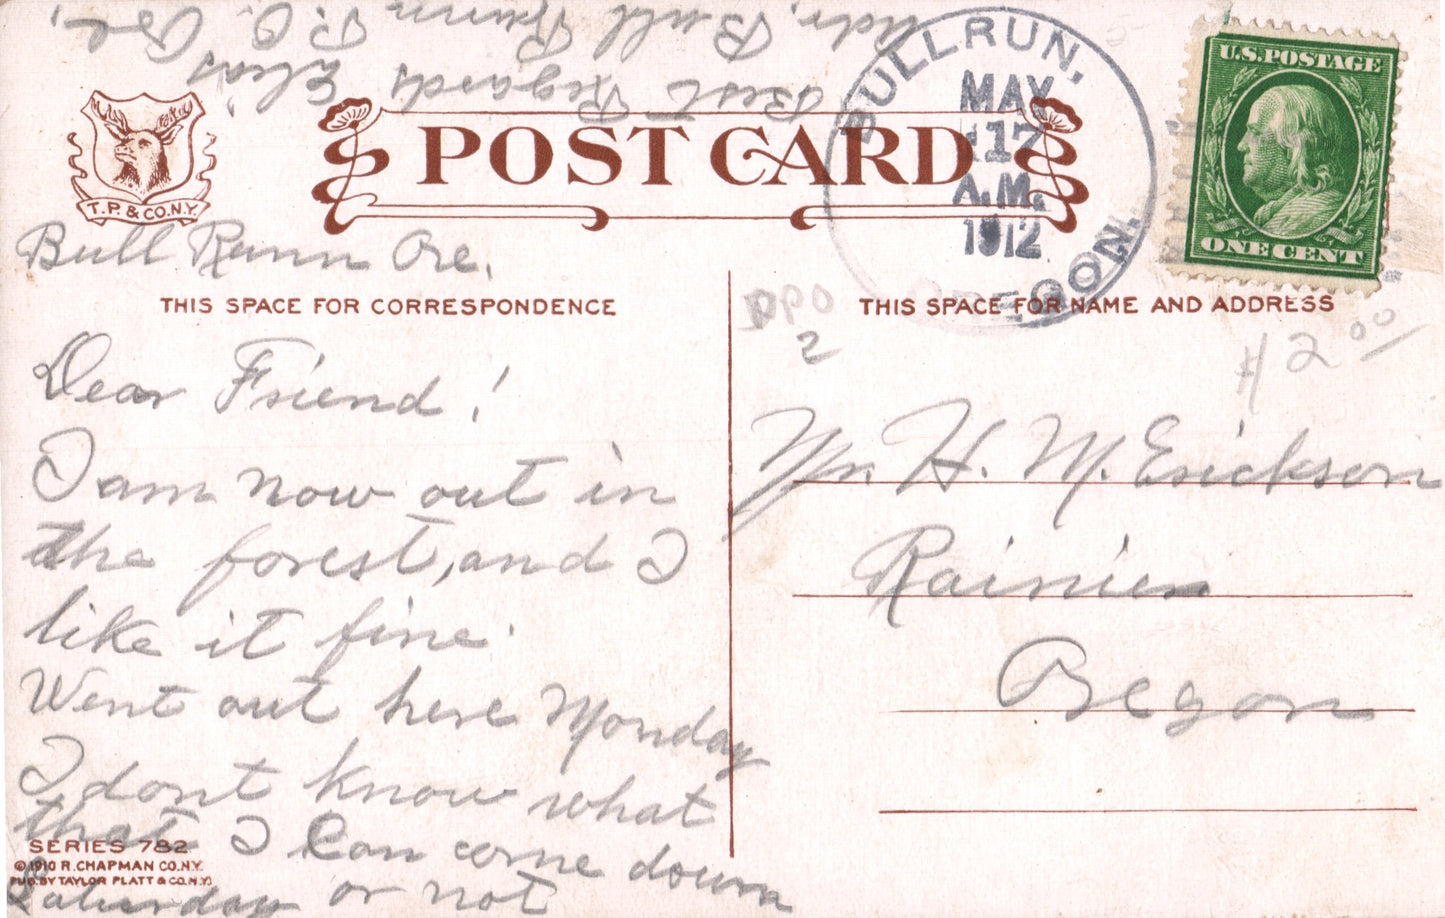 Best Regards Elias
Adr, Bull Runn P.O. Ore,
T.P. & CO. N.Y.
POST CARD
BULL RUN,
MAY
17
A.M.
1912
OREGON.
U.S. POSTAGE
ONE CENT
Bull Runn Ore.
THIS SPACE FOR CORRESPONDENCE
Dear Friend!
I am now out in
the forest, and I
like it fine.
Went out here Monday
I dont know what
that I Can come down
Saturday or not
SERIES 782
© 1910 R. CHAPMAN CO. N.Y.
PUB. BY TAYLOR PLATT & CO. N.Y.
DPO
2
THIS SPACE FOR NAME AND ADDRESS
$2.00
Mr. H. M. Erickson
Rainier
Oregon